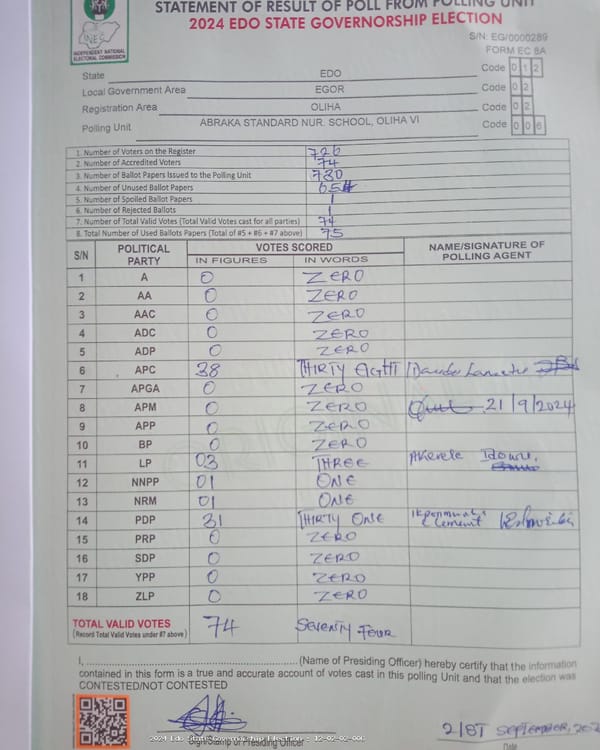 STATEMENT OF RESULT OF POLL FROM POLLING UNIT
2024 EDO STATE GOVERNORSHIP ELECTION
INEC
INDEPENDENT NATIONAL ELECTORAL COMMISSION
S/N: EG/0000289
FORM EC 8A
State EDO Code 0 1 2
Local Government Area EGOR Code 0 2
Registration Area OLIHA Code 0 2
Polling Unit ABRAKA STANDARD NUR. SCHOOL, OLIHA VI Code 0 0 6
1. Number of Voters on the Register 726
2. Number of Accredited Voters 74
3. Number of Ballot Papers Issued to the Polling Unit 730
4. Number of Unused Ballot Papers
5. Number of Spoiled Ballot Papers 1
6. Number of Rejected Ballots 1
7. Number of Total Valid Votes (Total Valid Votes cast for all parties) 74
8. Total Number of Used Ballots Papers (Total of #5 + #6 + #7 above) 75
S/N POLITICAL PARTY VOTES SCORED NAME/SIGNATURE OF POLLING AGENT
IN FIGURES IN WORDS
1 A 0 ZERO
2 AA 0 ZERO
3 AAC 0 ZERO
4 ADC 0 ZERO
5 ADP 0 ZERO
6 APC 38 THIRTY EIGHT
7 APGA 0 ZERO
8 APM 0 ZERO 21/9/2024
9 APP 0 ZERO
10 BP 0 ZERO
11 LP 03 THREE Akerele Idowu.
12 NNPP 01 ONE
13 NRM 01 ONE
14 PDP 31 THIRTY ONE Clement
15 PRP 0 ZERO
16 SDP 0 ZERO
17 YPP 0 ZERO
18 ZLP 0 ZERO
TOTAL VALID VOTES 74 SEVENTY FOUR
(Record Total Valid Votes under #7 above)
I, (Name of Presiding Officer) hereby certify that the information
contained in this form is a true and accurate account of votes cast in this polling Unit and that the election was
CONTESTED/NOT CONTESTED
21ST SEPTEMBER, 202
2024 Edo State Governorship Election - 12-02-02-006
Sign/Stamp of Presiding Officer
Date